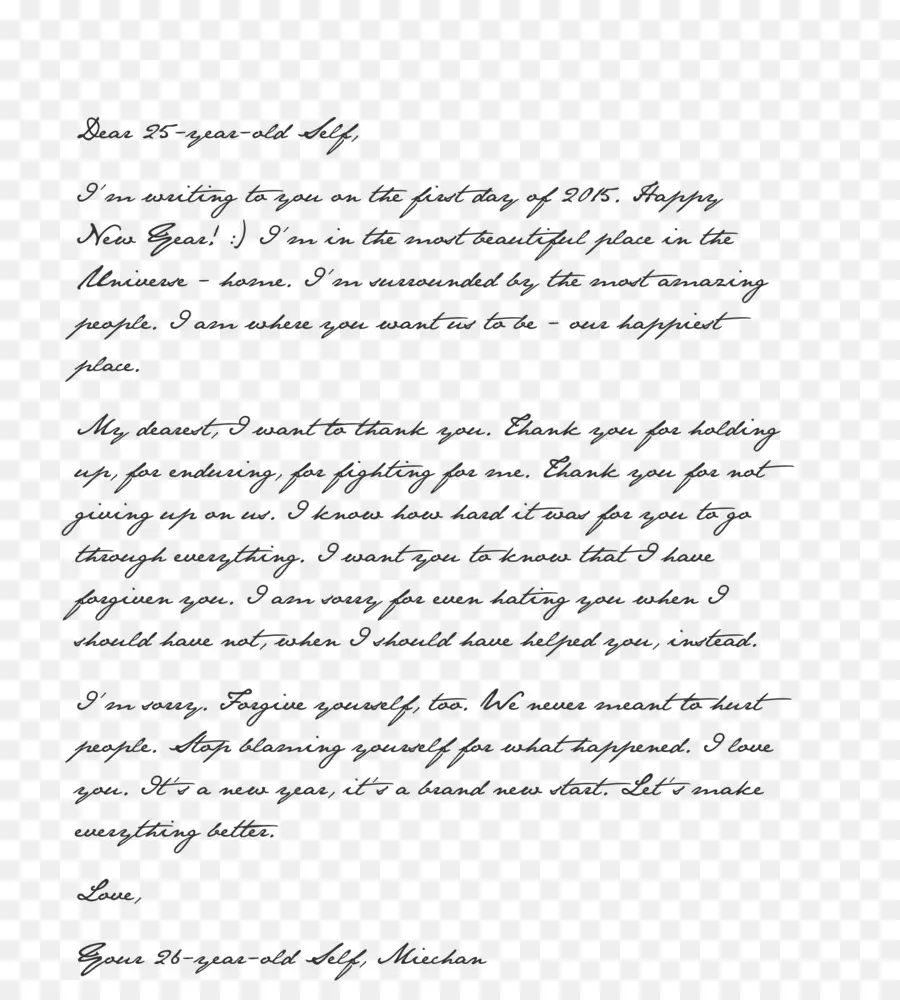 Dear 25-year-old Self,
I'm writing to you on the first day of 2015. Happy
New Year! :) I'm in the most beautiful place in the
Universe - home. I'm surrounded by the most amazing
people. I am where you want us to be - our happiest
place.
My dearest, I want to thank you. Thank you for holding
up, for enduring, for fighting for me. Thank you for not
giving up on us. I know how hard it was for you to go
through everything. I want you to know that I have
forgiven you. I am sorry for even hating you when I
should have not, when I should have helped you, instead.
I'm sorry. Forgive yourself, too. We never meant to hurt
people. Stop blaming yourself for what happened. I love
you. It's a new year, it's a brand new start. Let's make
everything better.
Love,
Your 26-year-old Self, Miechan